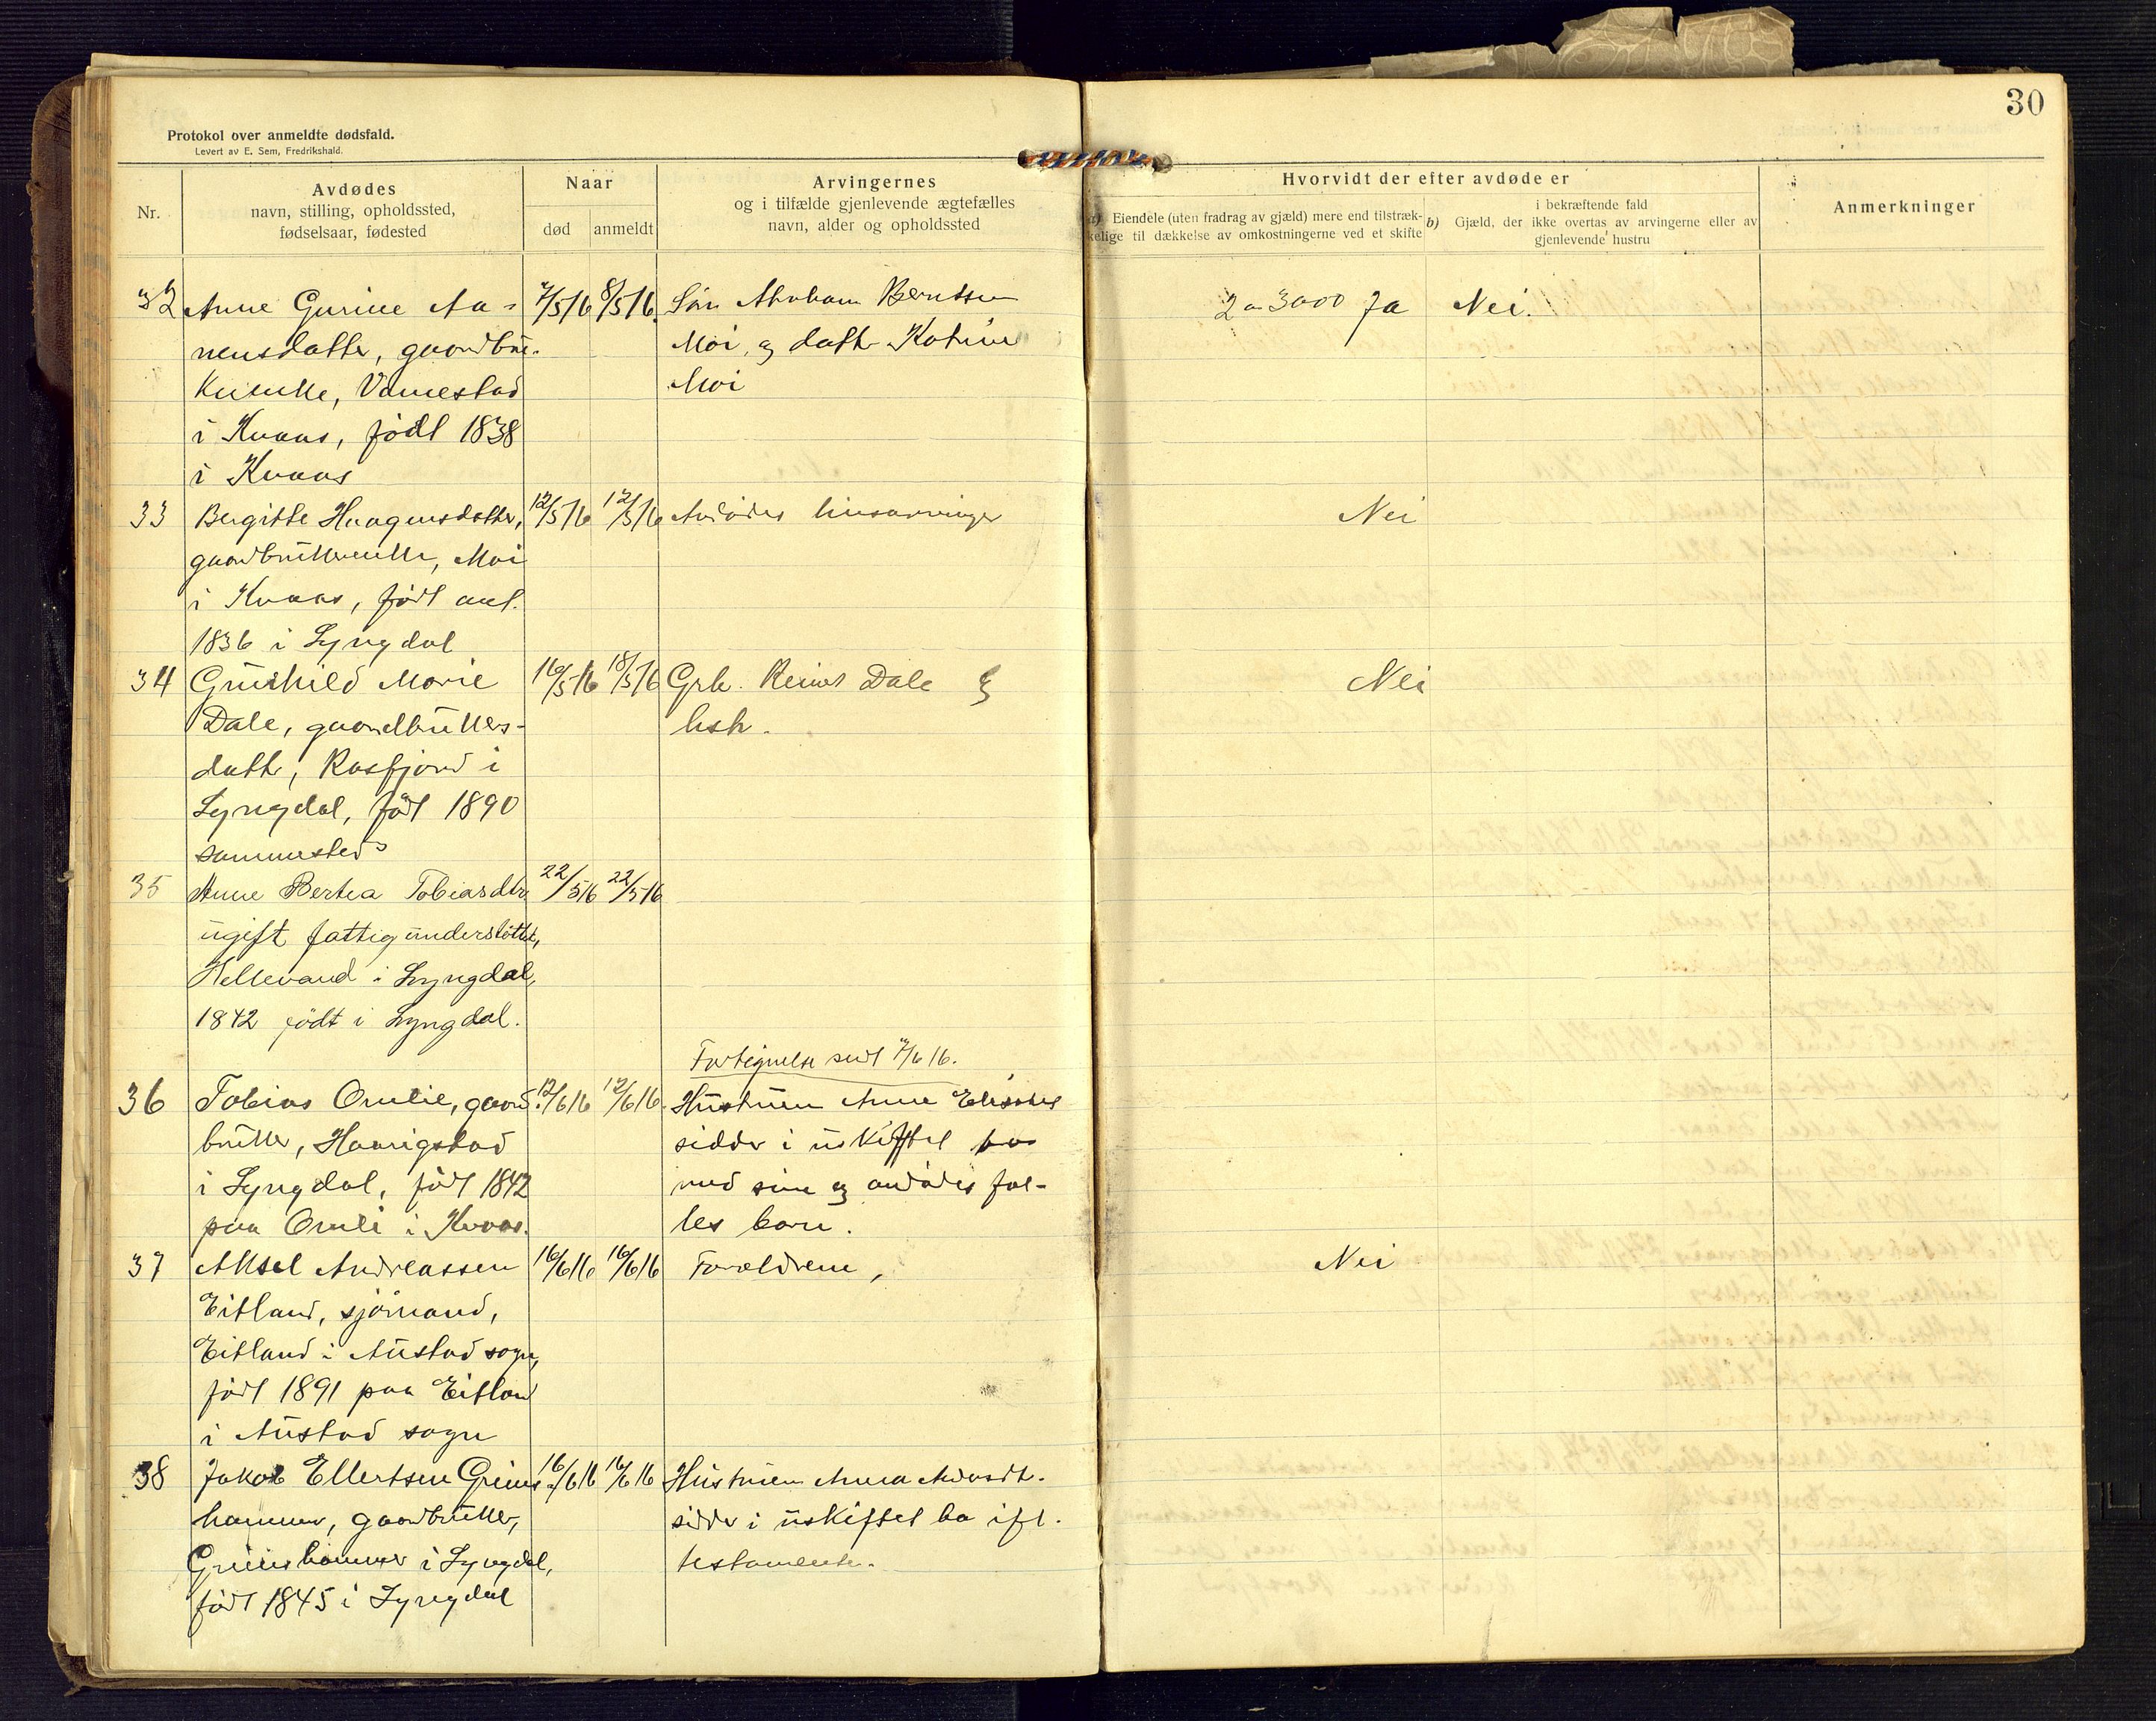 30
Protokol over anmeldte dødsfald.
Levert av E. Sem, Fredrikshald.
Nr.
Avdødes
navn, stilling, opholdssted,
fødselsaar, fødested
Naar
død
anmeldt
Arvingernes
og i tilfælde gjenlevende ægtefælles
navn, alder og opholdssted
Hvorvidt der efter avdøde er
a) Eiendele (uten fradrag av gjæld) mere end tilstræk-
kelige til dækkelse av omkostningerne ved et skifte
i bekræftende fald
b) Gjæld, der ikke overtas av arvingerne eller av
gjenlevende hustru
Anmerkninger
32 Anne Gurine Aa- 7/5 16 8/5 16. Søn Abraham Berntsen 2 a 3000 Ja Nei.
nensdatter, gaardbr.- Moi, og datter Katrine
Kvinde, Vamestad Moi
i Kvaas, født 1838
i Kvaas
33 Bergitte Haagensdatter, 12/5 16 12/5 16 Avdødes livsarvinger Nei
gaardbrukerenke, Moi
i Kvaas, født ant.
1836 i Lyngdal
34 Gunhild Marie 16/5 16 18/5 16 Gbr. Reiner Dale og Nei
Dale, gaardbrukers- hstr.
datter, Rosfjord i
Lyngdal, født 1890
sammested
35 Anne Bertea Tobiasdtr. 22/5 16 22/5 16
ugift fattigunderstøttet,
Hellevand i Lyngdal,
1842 født i Lyngdal.
Fortegnelse sendt 7/6 16.
36 Tobias Omlie, gaard- 12/6 16 12/6 16. Hustruen Anne
bruker, Haarigstad sidder i uskiftet bo
i Lyngdal, født 1842 med sine og avdødes fæl-
paa Omli i Kvaas. les barn.
37 Aksel Andreassen 16/6 16 16/6 16 Forældrene, Nei
Eitland, sjömand,
Eitland i Austad sogn,
født 1891 paa Eitland
i Austad sogn
38 Jakob Ellertsen Grims- 16/6 16 16/6 16 Hustruen Anna
hammer, gaardbruker, sidder i uskiftet bo ifl.
Grimshammer i Lyngdal, testamente.
født 1845 i Lyngdal